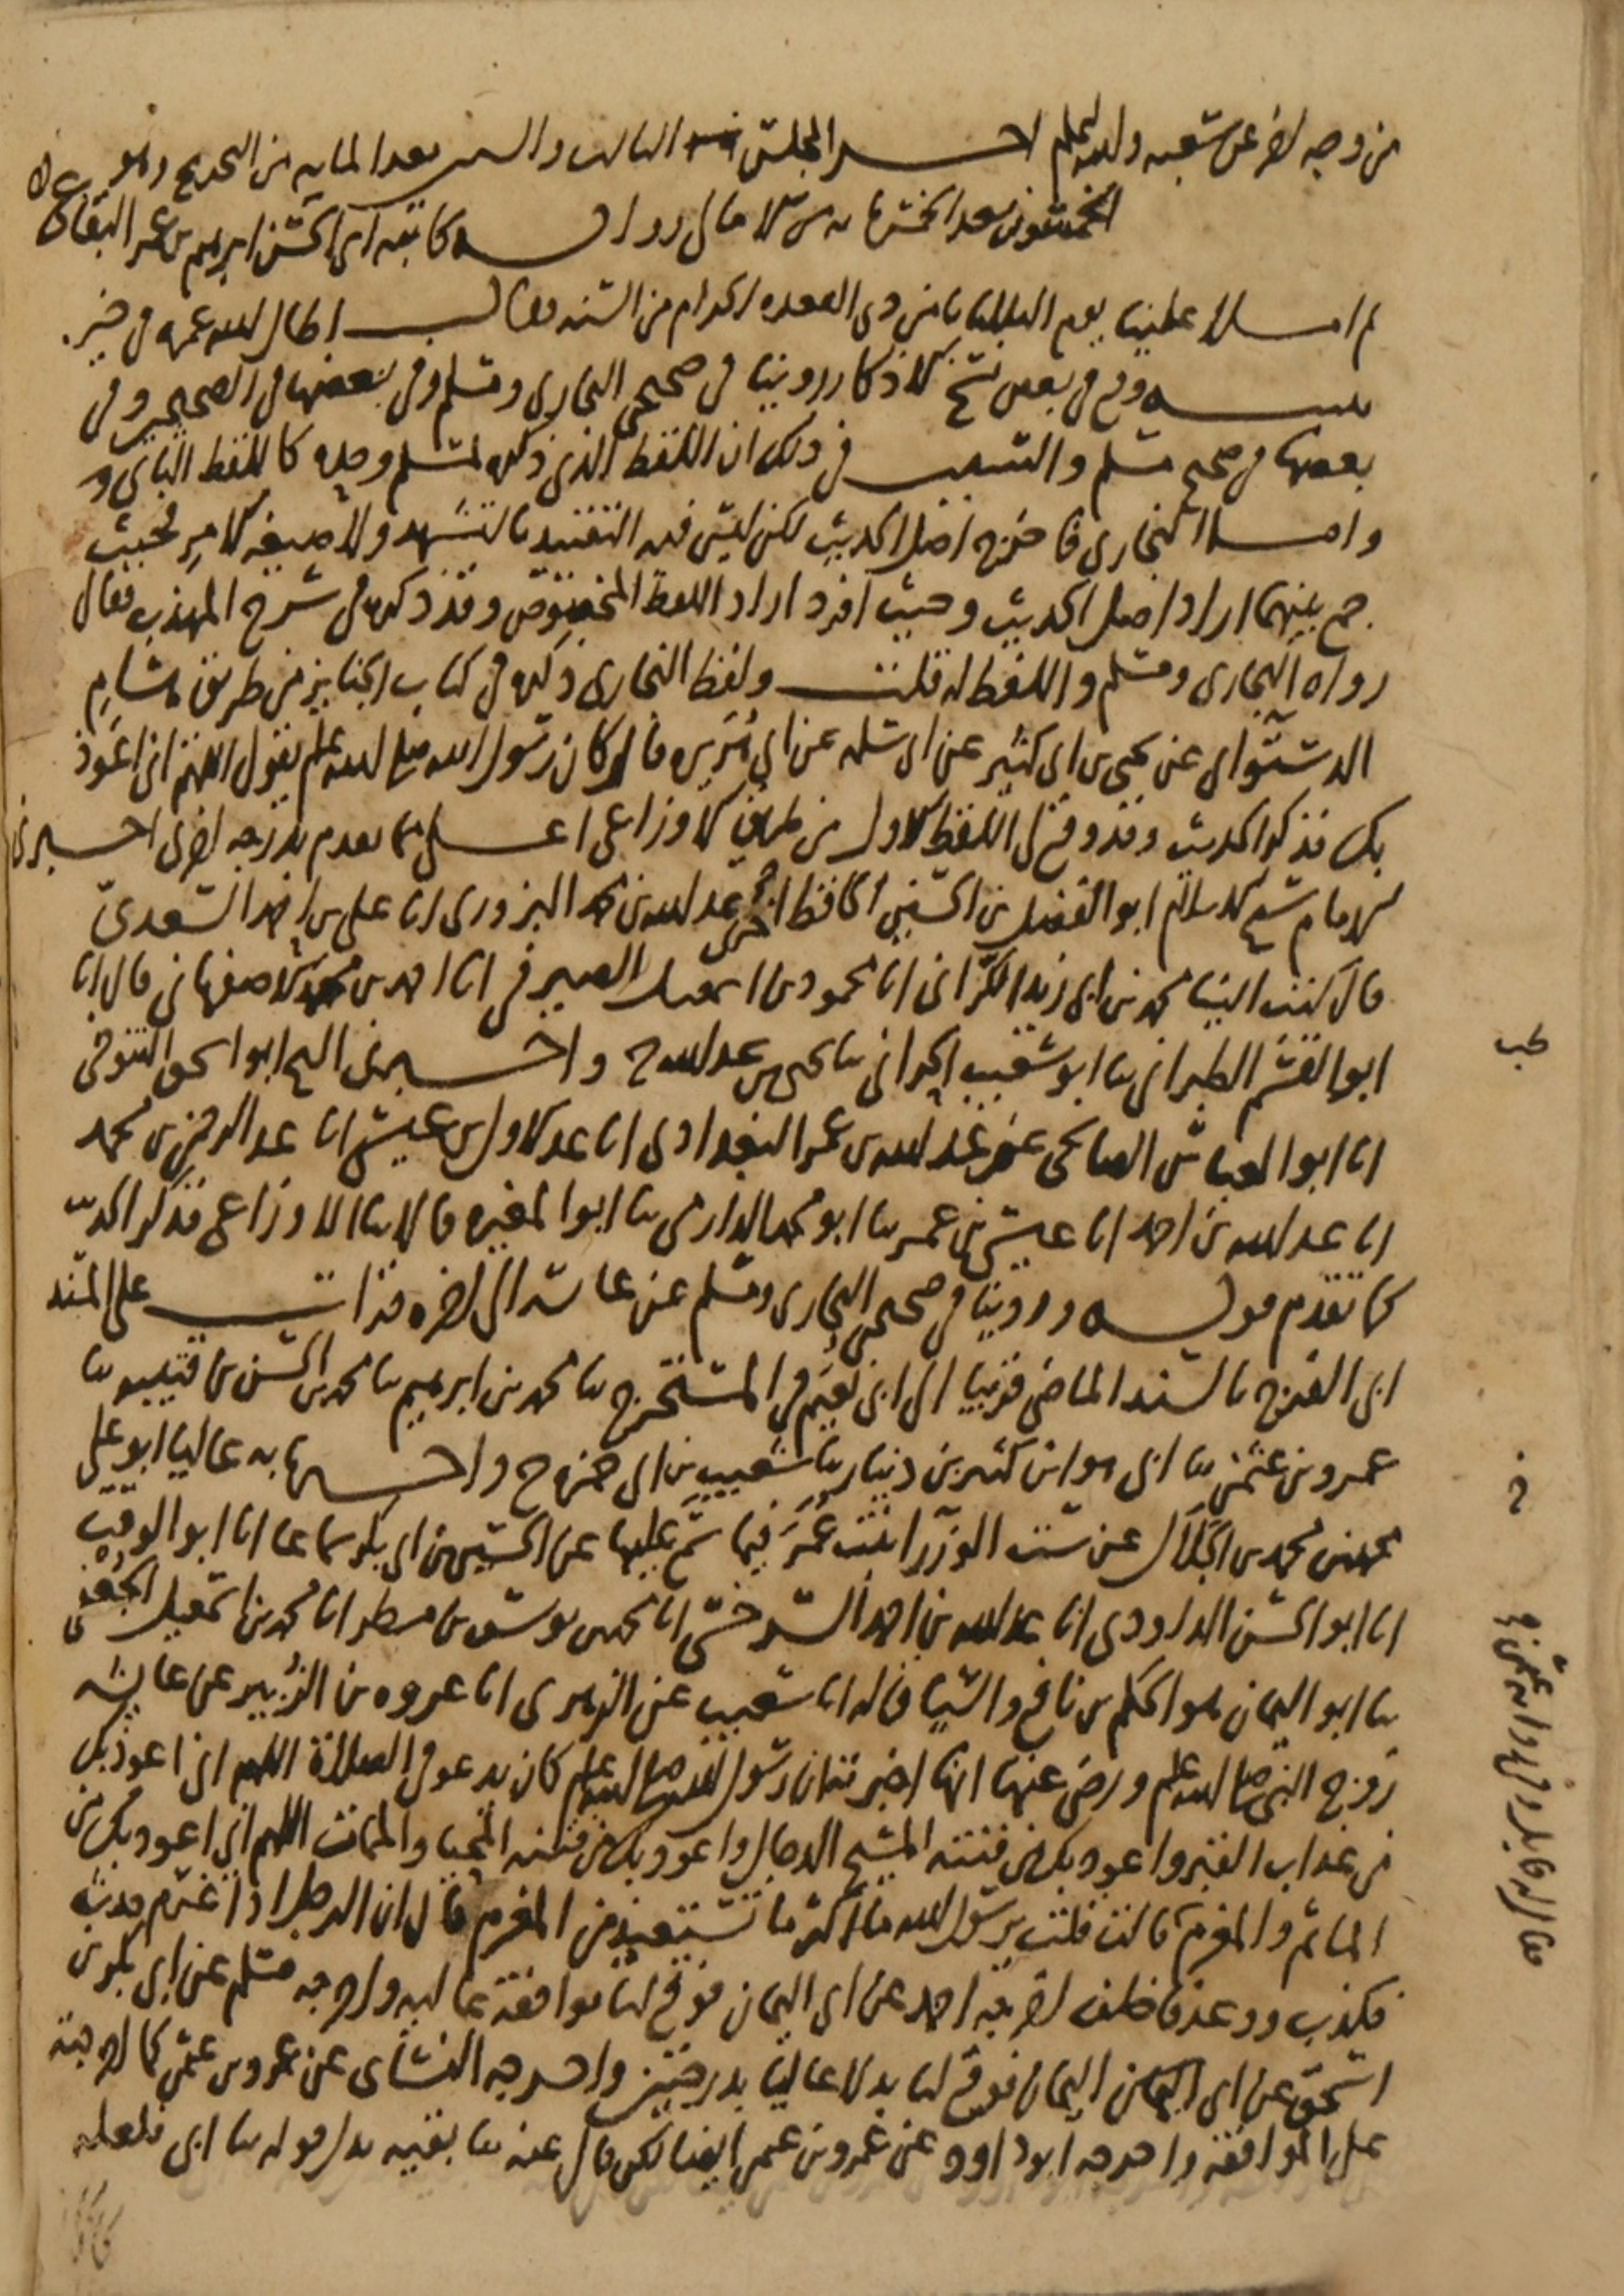 من وجه اخر عن شعبه والله اعلم اخر المجلس الثالث والستين بعد المايه من التخريج وهو
الخمسون بعد الخمسمايه من الامالي رواية كاتبه ابي الحسن ابرهيم بن عمر البقاعي
ثم املا علينا يوم الثلاثا ثامن ذي القعده الحرام من السنه فقال اطال الله عمره في خير
تنبيه وقع في بعض نسخ الاذكار روينا في صحيحي البخاري ومسلم وفي بعضها في الصحيحين وفي
بعضها في صحيح مسلم والسبب في ذلك ان اللفظ الذي ذكره لمسلم وحده كاللفظ الثاني
واما البخاري فاخرج اصل الحديث لكن ليس فيه التقييد بالتشهد ولا صيغه الامر فحيث
جمع بينهما اراد اصل الحديث وحيث افرد اراد اللفظ المخصوص وقد ذكره في شرح المهذب فقال
رواه البخاري ومسلم واللفظ له قلت ولفظ البخاري ذكره في كتاب الجنايز من طريق هشام
الدستواي عن يحيى بن ابي كثير عن ابي سلمه عن ابي هريره قال كان رسول الله صلى الله عليه وسلم يقول اللهم اني اعوذ
بك فذكر الحديث وقد وقع لي اللفظ الاول من طريق الاوزاعي اعلى مما تقدم بدرجه اخرى اخبرني
الامام شيخ الاسلام ابو الفضل بن الحسين الحافظ اخبرني عبد الله بن محمد البزوري انا علي بن احمد السعدي
قال كتب الينا محمد بن ابي زيد الكراني انا محمود بن اسمعيل الصيرفي انا احمد بن محمد الاصفهاني قال انا
ابو القسم الطبراني ثنا ابو شعيب الحراني ثنا يحيى بن عبد الله ح واخبرني الشيخ ابو اسحق التنوخي
انا ابو العباس الصالحي عن عبد الله بن عمر البغدادي انا عبد الاول بن عيسى انا عبد الرحمن بن محمد
انا عبد الله بن احمد انا عيسى بن عمر ثنا ابو محمد الدارمي ثنا ابو المغيره قالا ثنا الاوزاعي فذكر الحديث
كما تقدم قوله وروينا في صحيحي البخاري ومسلم عن عائشه الى اخره قرات على المسند
ابي الفرج بالسند الماضي قريبا الى ابي نعيم في المستخرج ثنا محمد بن ابرهيم ثنا محمد بن الحسن بن قتيبه ثنا
عمرو بن عثمن ثنا ابي هو ابن كثير بن دينار ثنا شعيب بن ابي حمزه ح واخبرنا به عاليا ابو علي
محمد بن محمد بن الجلال عن ست الوزرا بنت عمر فيما سمع عليها عن الحسين بن ابي بكر سماعا انا ابو الوقت
انا ابو الحسن الداودي انا عبد الله بن احمد السرخسي انا محمد بن يوسف بن مطر انا محمد بن اسمعيل الجعفي
ثنا ابو اليمان هو الحكم بن نافع والسياق له انا شعيب عن الزهري انا عروه بن الزبير عن عايشه
زوج النبي صلى الله عليه وسلم ورضي عنها انها اخبرته ان رسول الله صلى الله عليه وسلم كان يدعو في الصلاة اللهم اني اعوذ بك
من عذاب القبر واعوذ بك من فتنه المسيح الدجال واعوذ بك من فتنه المحيا والممات اللهم اني اعوذ بك من
الماثم والمغرم قالت قلت يرسول الله ما اكثر ما تستعيذ من المغرم قال ان الرجل اذا غرم حدث
فكذب ووعد فاخلف اخرجه احمد عن ابي اليمان فوقع لنا موافقة عاليه واخرجه مسلم عن ابي بكر بن
اسحق عن ابي اليمان فوقع لنا بدلا عاليا بدرجتين واخرجه النسائي عن عمرو بن عثمن كما اخرجته
على الموافقه واخرجه ابو داود عن عمرو بن عثمن ايضا لكن قال عنه ثنا بقيه بدل قوله ثنا ابي فلعله